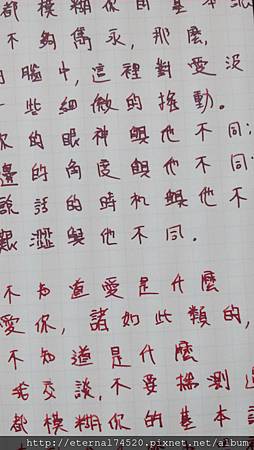 都模糊你的基本
不夠雋永,那麼
腦中,這裡對愛沒
一些細微的搖動。
你的眼神與他不同;
邊的角度與他不同
說話的時机與他不
艱澀與他不同。
不知道愛是什麼
愛你,諸如此類的,
不知道是什麼
給交談,不要探測
都模糊你的基本
http://eternal74520.pixnet.net/album